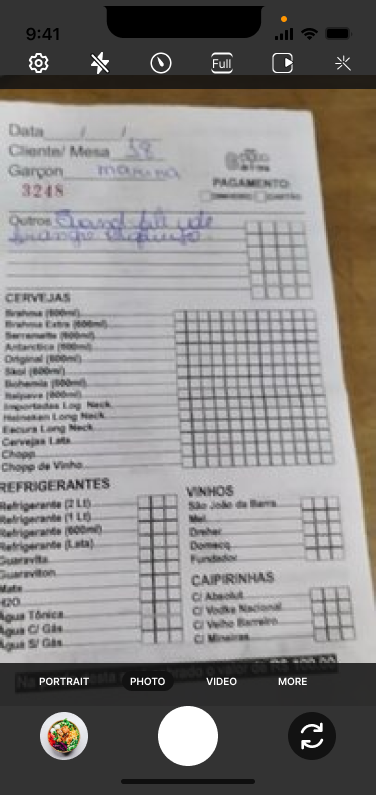 9:41
Full
Data / /
Cliente/ Mesa 58
Garçon marina
3248
PAGAMENTO
DINHEIRO CARTÃO
Outros
CERVEJAS
Brahma (600ml)
Brahma Extra (600ml)
Serramalte (600ml)
Antarctica (600ml)
Original (600ml)
Skol (600ml)
Bohemia (600ml)
Itaipava (600ml)
Importadas Log Neck
Heineken Long Neck
Escura Long Neck
Cervejas Lata
Chopp
Chopp de Vinho
REFRIGERANTES
Refrigerante (2 Lt)
Refrigerante (1 Lt)
Refrigerante (600ml)
Refrigerante (Lata)
Guaravita
Guaraviton
Mate
H2O
Água Tônica
Água C/ Gás
Água S/ Gás
VINHOS
São João da Barra
Mel
Dreher
Domecq
Fundador
CAIPIRINHAS
C/ Absolut
C/ Vodka Nacional
C/ Velho Barreiro
C/ Mineiras
o valor de R$ 100,00
PORTRAIT
PHOTO
VIDEO
MORE